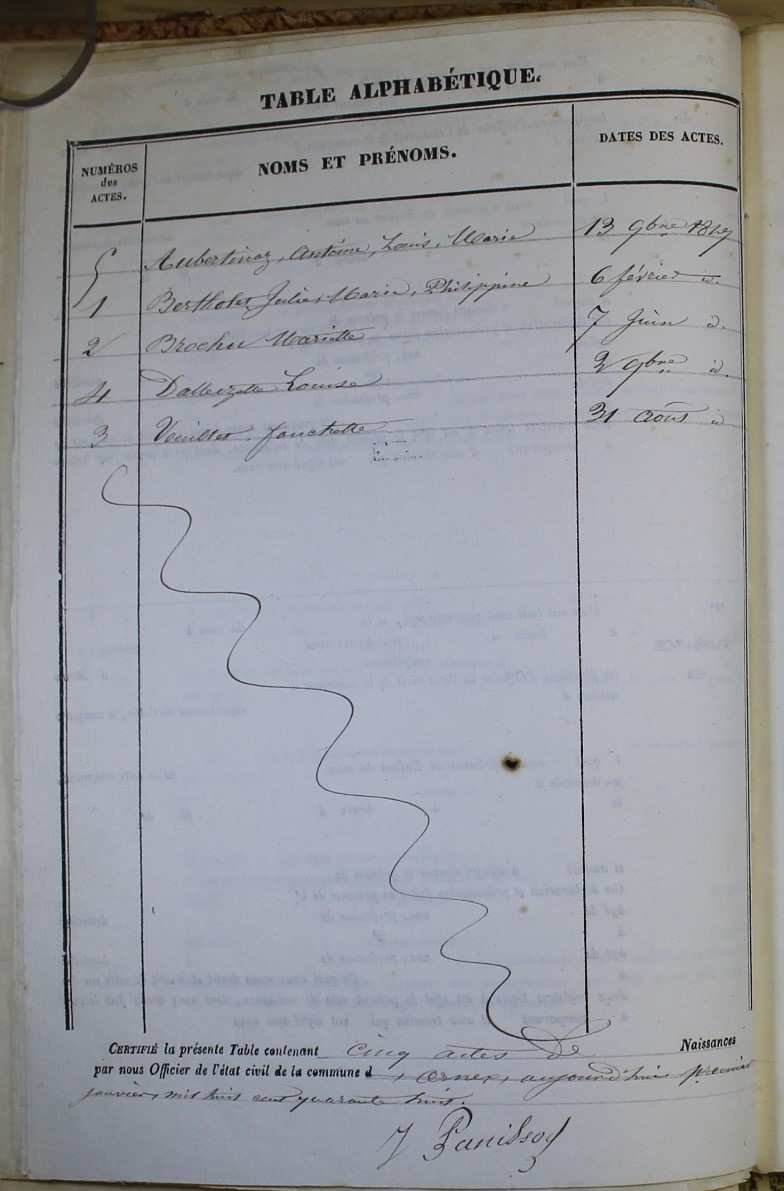 TABLE ALPHABÉTIQUE.
NUMÉROS des ACTES.
NOMS ET PRÉNOMS.
DATES DES ACTES.
5 Aubertinaz, Antoine, Louis, Marie 13 9bre 1847
1 Bertholet Julie, Marie, Philippine 6 février id.
2 Brochu Mariette 7 Juin id.
4 Louise 2 9bre id.
3 Veuillet Janchette 31 août id
CERTIFIÉ la présente Table contenant cinq actes de Naissances
par nous Officier de l'état civil de la commune d aujourd'hui premier
janvier, mil huit cent quarante huit.
J Panisso